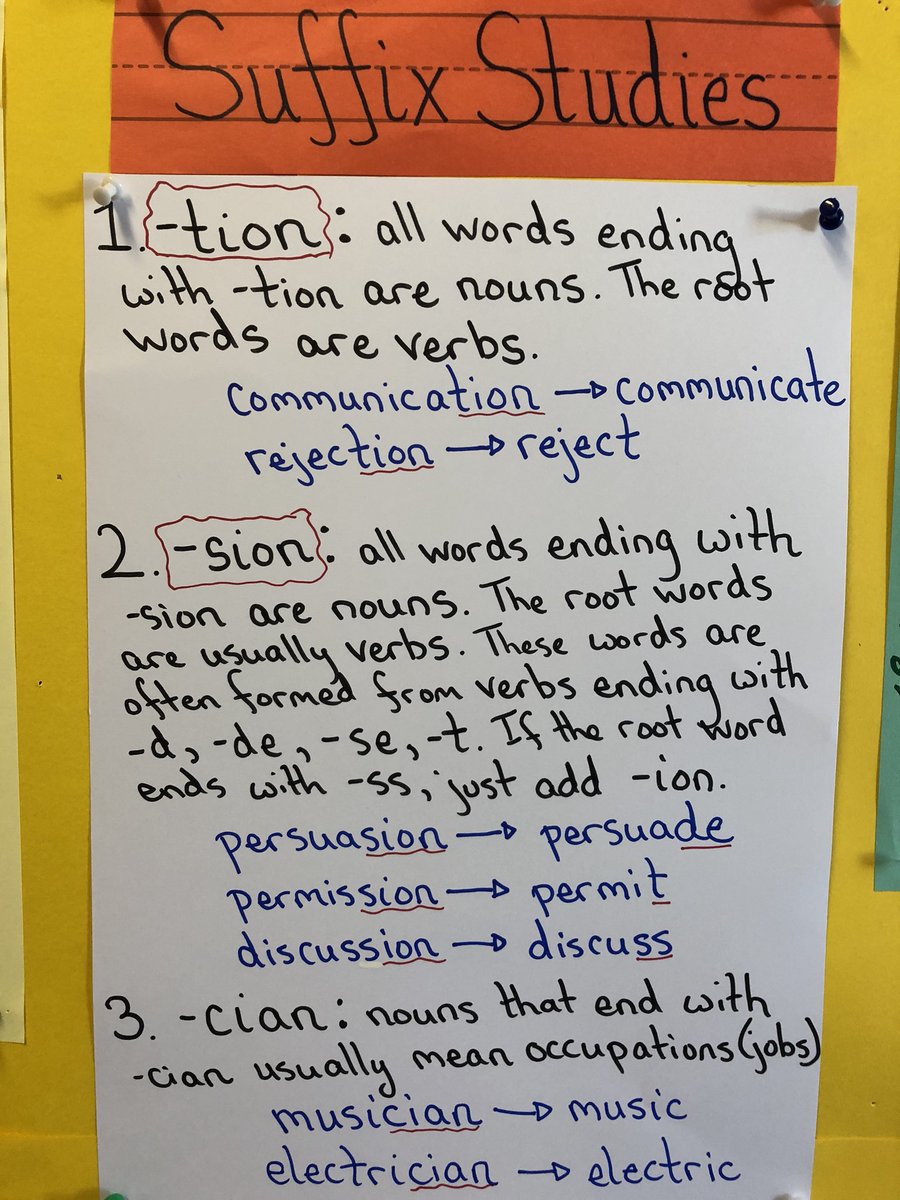 Suffix Studies
1. -tion: all words ending
with -tion are nouns. The root
words are verbs.
communication → communicate
rejection → reject
2. -sion: all words ending with
-sion are nouns. The root words
are usually verbs. These words are
often formed from verbs ending with
-d, -de, -se, -t. If the root word
ends with -ss, just add -ion.
persuasion → persuade
permission → permit
discussion → discuss
3. -cian: nouns that end with
-cian usually mean occupations (jobs)
musician → music
electrician → electric